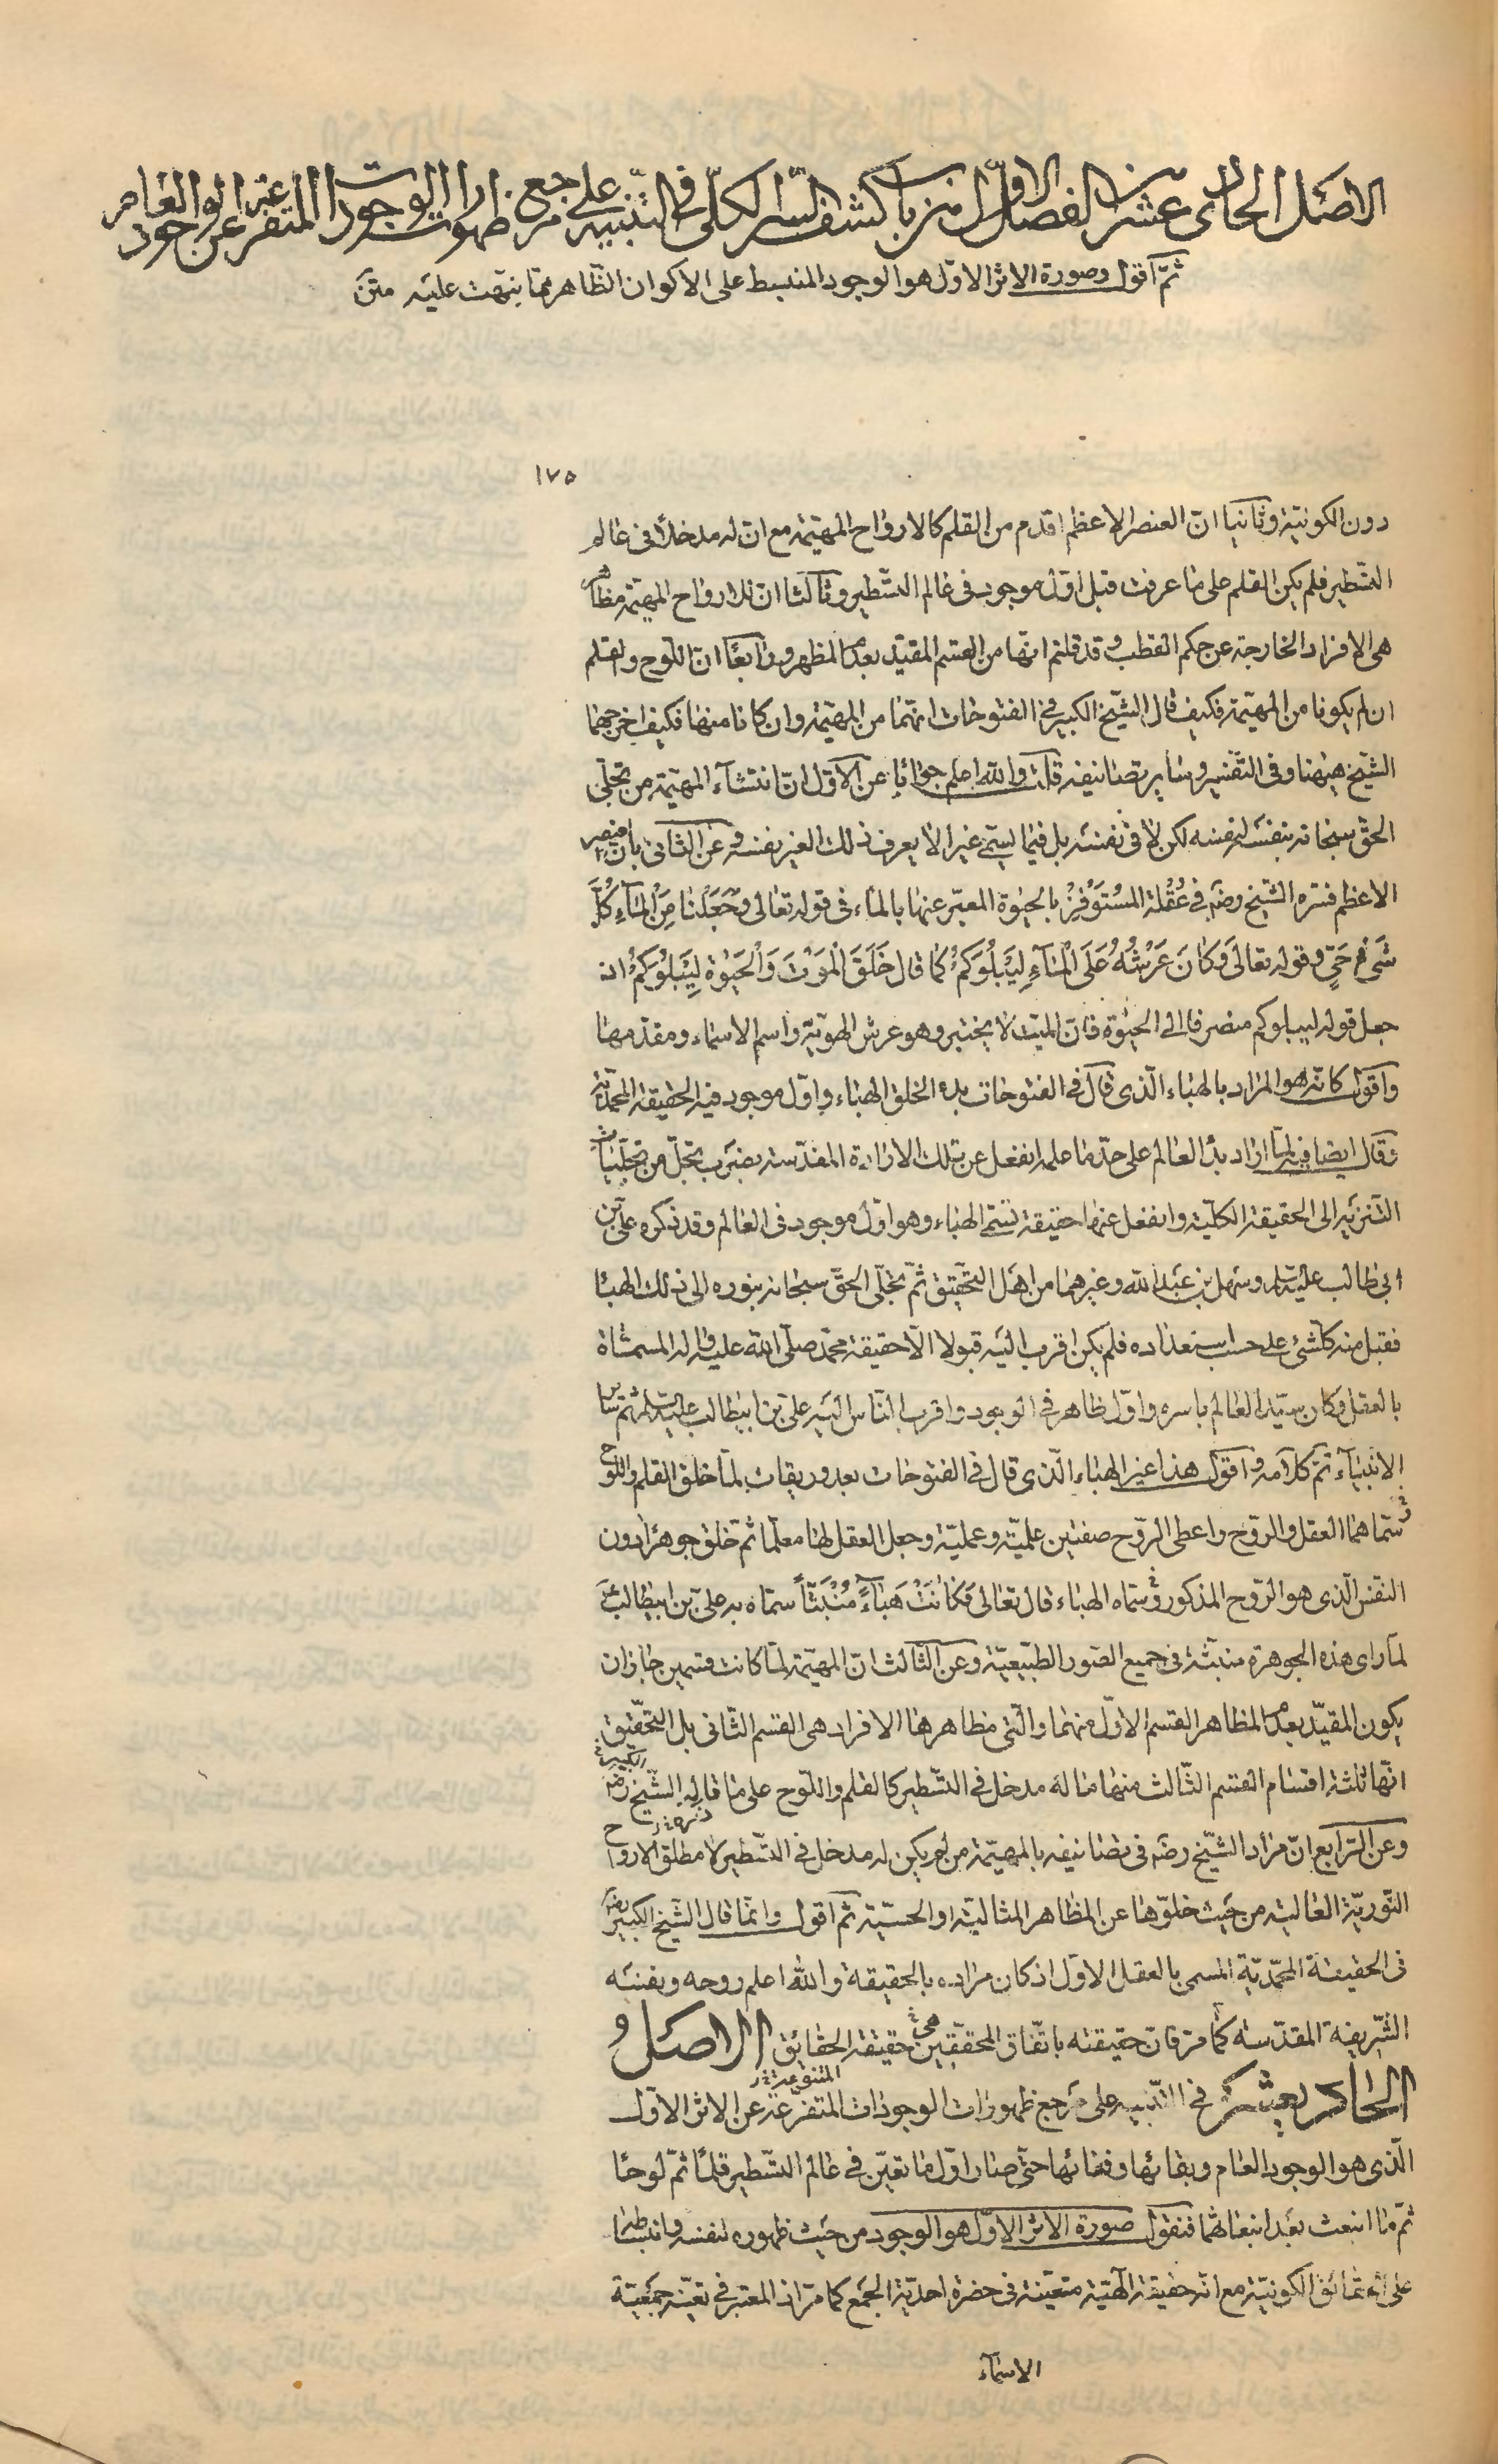 الاصل الحادى عشر من الفصل الاول من باب كشف السر الكلى فى التنبيه على مرجع ظهورات الوجودات المتفرعة عن الوجود العام
ثمّ اقول وصورة الاثر الاوّل هو الوجود المنبسط على الاكوان الظّاهر ممّا ينبّهت عليه متن
١٧٥
دون الكونيّة وثانيا انّ العنصر الاعظم اقدم من القلم كالارواح المهيّمة مع ان له مدخلاً فى عالم
التسّطير فلم يكن القلم على ما عرفت قبل اوّل موجود فى عالم التسّطير وثالثا ان الارواح المهيمة مظاهر
هى الافراد الخارجة عن حكم القطب وقد قلتم انّها من القسم المقيّد بعدم المظهر ورابعًا انّ اللّوح والقلم
ان لم يكونا من المهيّمة فكيف قال الشّيخ الكبير فى الفتوحات انّهما من المهيّمة وان كانا منها فكيف اخرجهما
الشيخ ههنا وفى التّفسير وساير تصانيفه قلت والله اعلم جوابًا عن الاوّل انّ انتشآء المهيّمة من تجلّى
الحق سبحانه بنفسه لنفسه لكن لا فى نفسه بل فيما يسمّى غيرا لا يعرف ذلك الغير نفسه وعن الثانى بان العنصر
الاعظم فسّره الشّيخ رضه فى عُقْلة المُسْتَوْفِزْ بالحيوة المعبّر عنها بالماء فى قوله تعالى وَجَعَلْنَا مِنَ الْمَآءِ كُلَّ
شَىْءٍ حَىٍّ وقوله تعالى وَكَانَ عَرْشُهُ عَلَى الْمَآءِ لِيَبْلُوَكُمْ كما قال خَلَقَ الْمَوْتَ وَالْحَيٰوةَ لِيَبْلُوَكُمْ انه
جعل قوله ليبلوكم منصرفا الى الحيٰوة فانّ الميّت لا يختبر وهو عرش الهويّة واسم الاسماء ومقدّمها
واقول كانّه هو المراد بالهباء الّذى قال فى الفتوحات بدء الخلق الهباء واوّل موجود فيه الحقيقة المحمّديّة
وقال ايضا فيه لمّا اراد بدء العالم على حدّ ما علمه انفعل عن تلك الارادة المقدّسة بضرب تجلّ من تجلّيات
التّنزيه الى الحقيقة الكلّيّة وانفعل عنها حقيقة تسمّى الهباء وهو اوّل موجود فى العالم وقد ذكره علىّ بن
ابى طالب عليه السلم وسهل بن عبد الله وغيرهما من اهل التّحقيق ثمّ تجلّى الحقّ سبحانه بنوره الى ذلك الهباء
فقبل منه كلّ شئ على حسب استعداده فلم يكن اقرب اليه قبولا الّا حقيقة محمّد صلّى الله عليه واله المسمّاة
بالعقل وكان سيّد العالم باسره واوّل ظاهر فى الوجود واقرب النّاس اليه علىّ بن ابيطالب عليه السلم ثم ساير
الانبيآء تمّ كلامه واقول هذا غير الهباء الّذى قال فى الفتوحات بعد وريقات لمّا خلق القلم واللّوح
وسمّاهما العقل والروح واعطى الرّوح صفتين علميّة وعمليّة وجعل العقل لها معلّما ثمّ خلق جوهرًا دون
النّفس الّذى هو الرّوح المذكور وسمّاه الهباء قال تعالى فَكَانَتْ هَبَآءً مُنْبَثًّا سمّاه به علىّ بن ابيطالب ع
لما راى هذه الجوهرة منبثّة فى جميع الصّور الطّبيعيّة وعن الثّالث انّ المهيّمة لمّا كانت قسمين جاز ان
يكون المقيّد بعدم المظاهر القسم الاوّل منهما والّتى مظاهرها الافراد هى القسم الثّانى بل التحقيق
انّها ثلثة اقسام القسم الثّالث منها ما له مدخل فى التسّطير كالقلم واللّوح على ما قاله الشّيخ الكبير رضه
وعن الرّابع انّ مراد الشّيخ رضه فى تصانيفه بالمهيّمة من لم يكن له مدخل فى التسّطير لا مطلق الارواح
النّوريّة العالية من حيث خلوّها عن المظاهر المثاليّة او الحسّيّة ثم اقول وانّما قال الشّيخ الكبير رضه
فى الحقيقة المحمّديّة المسمى بالعقل الاوّل اذ كان مراده بالحقيقة والله اعلم روحه ونفسه
الشّريفة المقدّسة كما مرّ فانّ حقيقته باتّفاق المحقّقين هى حقيقة الحقائق الاصل
الحادى عشر فى التّنبيه على مرجع ظهورات الوجودات المتفرّعة عن الاثر الاوّل
الّذى هو الوجود العام وبقائها وفنائها حتّى صار اوّل ما تعيّن فى عالم التسّطير قلمًا ثمّ لوحًا
ثمّ ما انبعث بعد انبعاثهما فنقول صورة الاثر الاوّل هو الوجود من حيث ظهوره لنفسه وانبساطه
على الحقائق الكونيّة مع انّه حقيقة الٰهيّة متعيّنة فى حضرة احديّة الجمع كما مرّ اذ المعتبر فى تعيّنه جمعيّة
الاسمآء